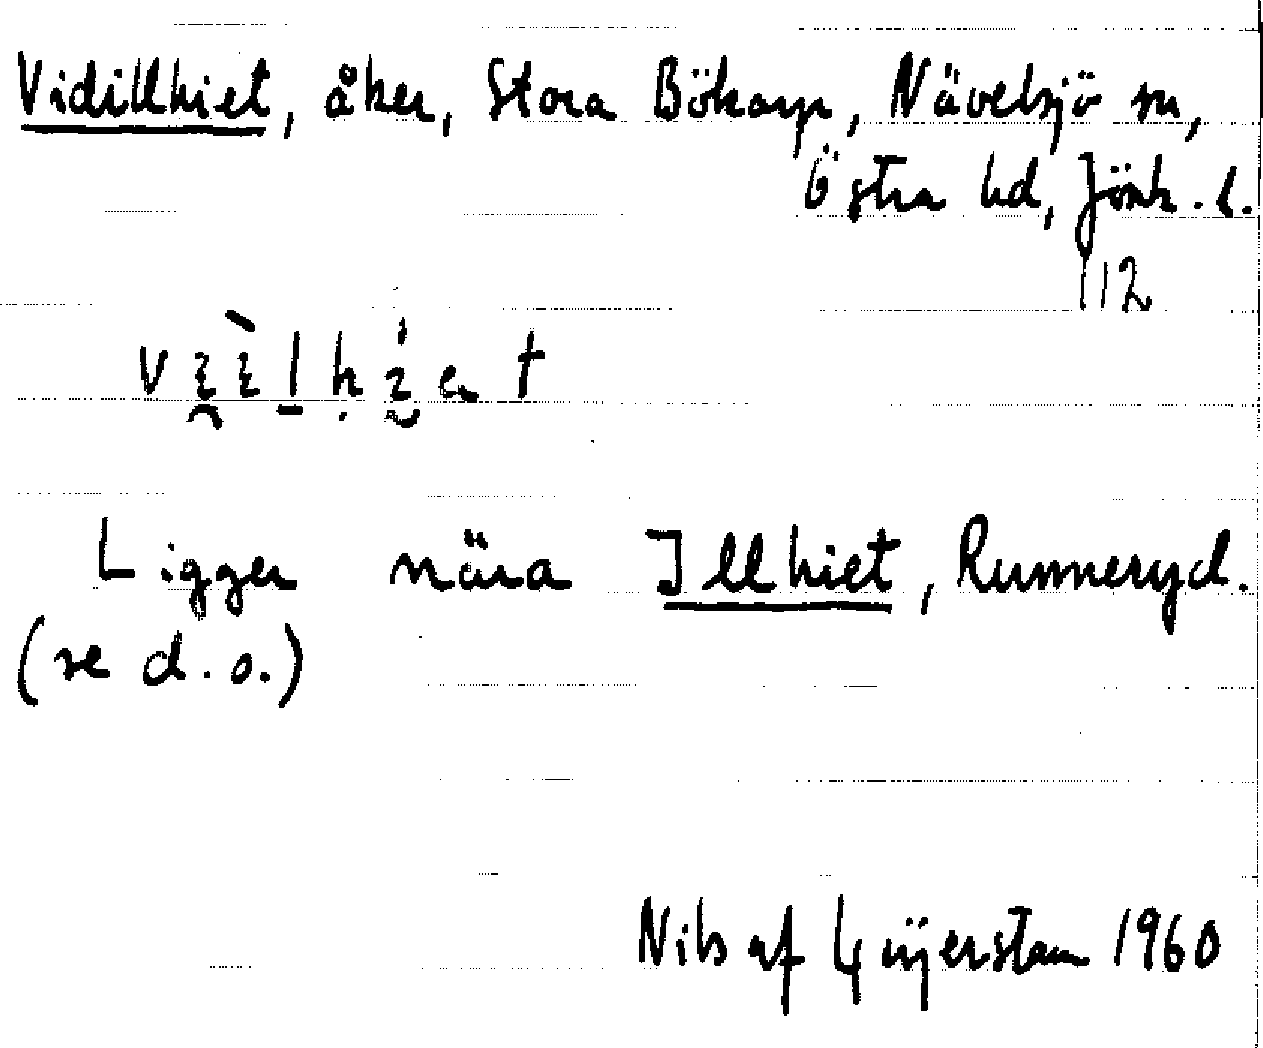 Vidillhiet, åker, Stora Bökarp, Nävelsjö sn,
Östra hd, Jönk. l.
112
Ligger nära Illhiet, Runneryd.
(se d.o.)
Nils af Geijerstam 1960